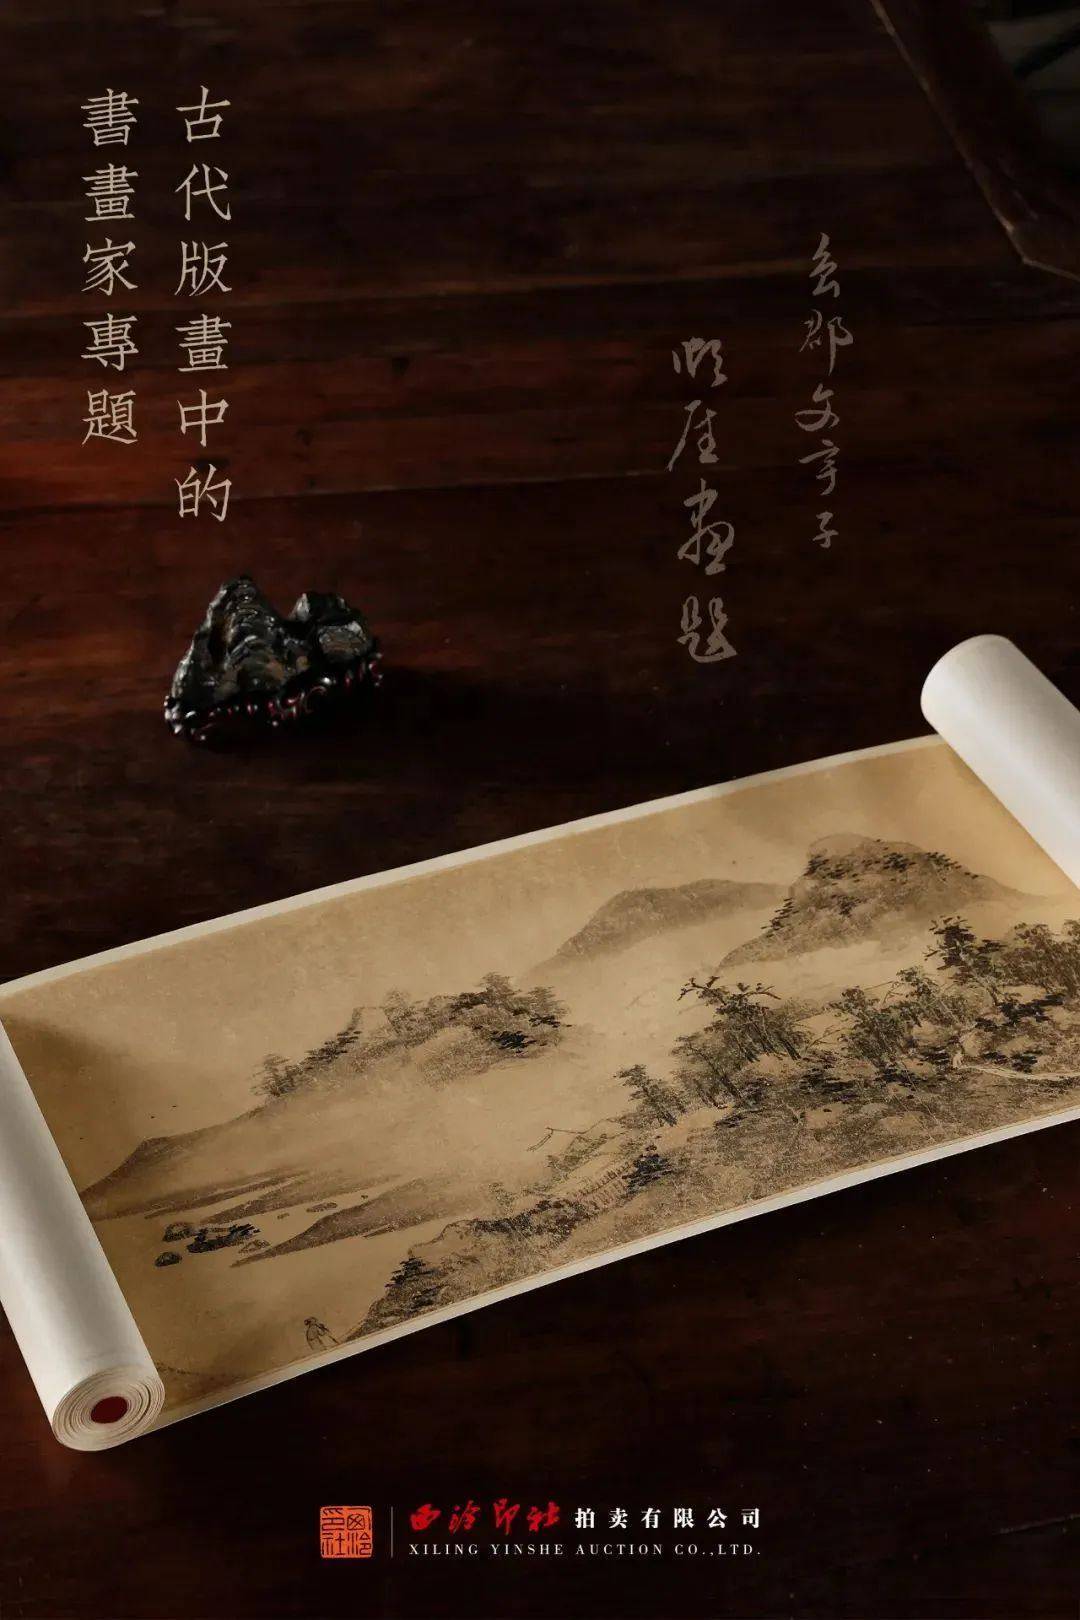 古代版畫中的
書畫家專題
西泠印社 拍卖有限公司
XILING YINSHE AUCTION CO.,LTD.
西泠
印社